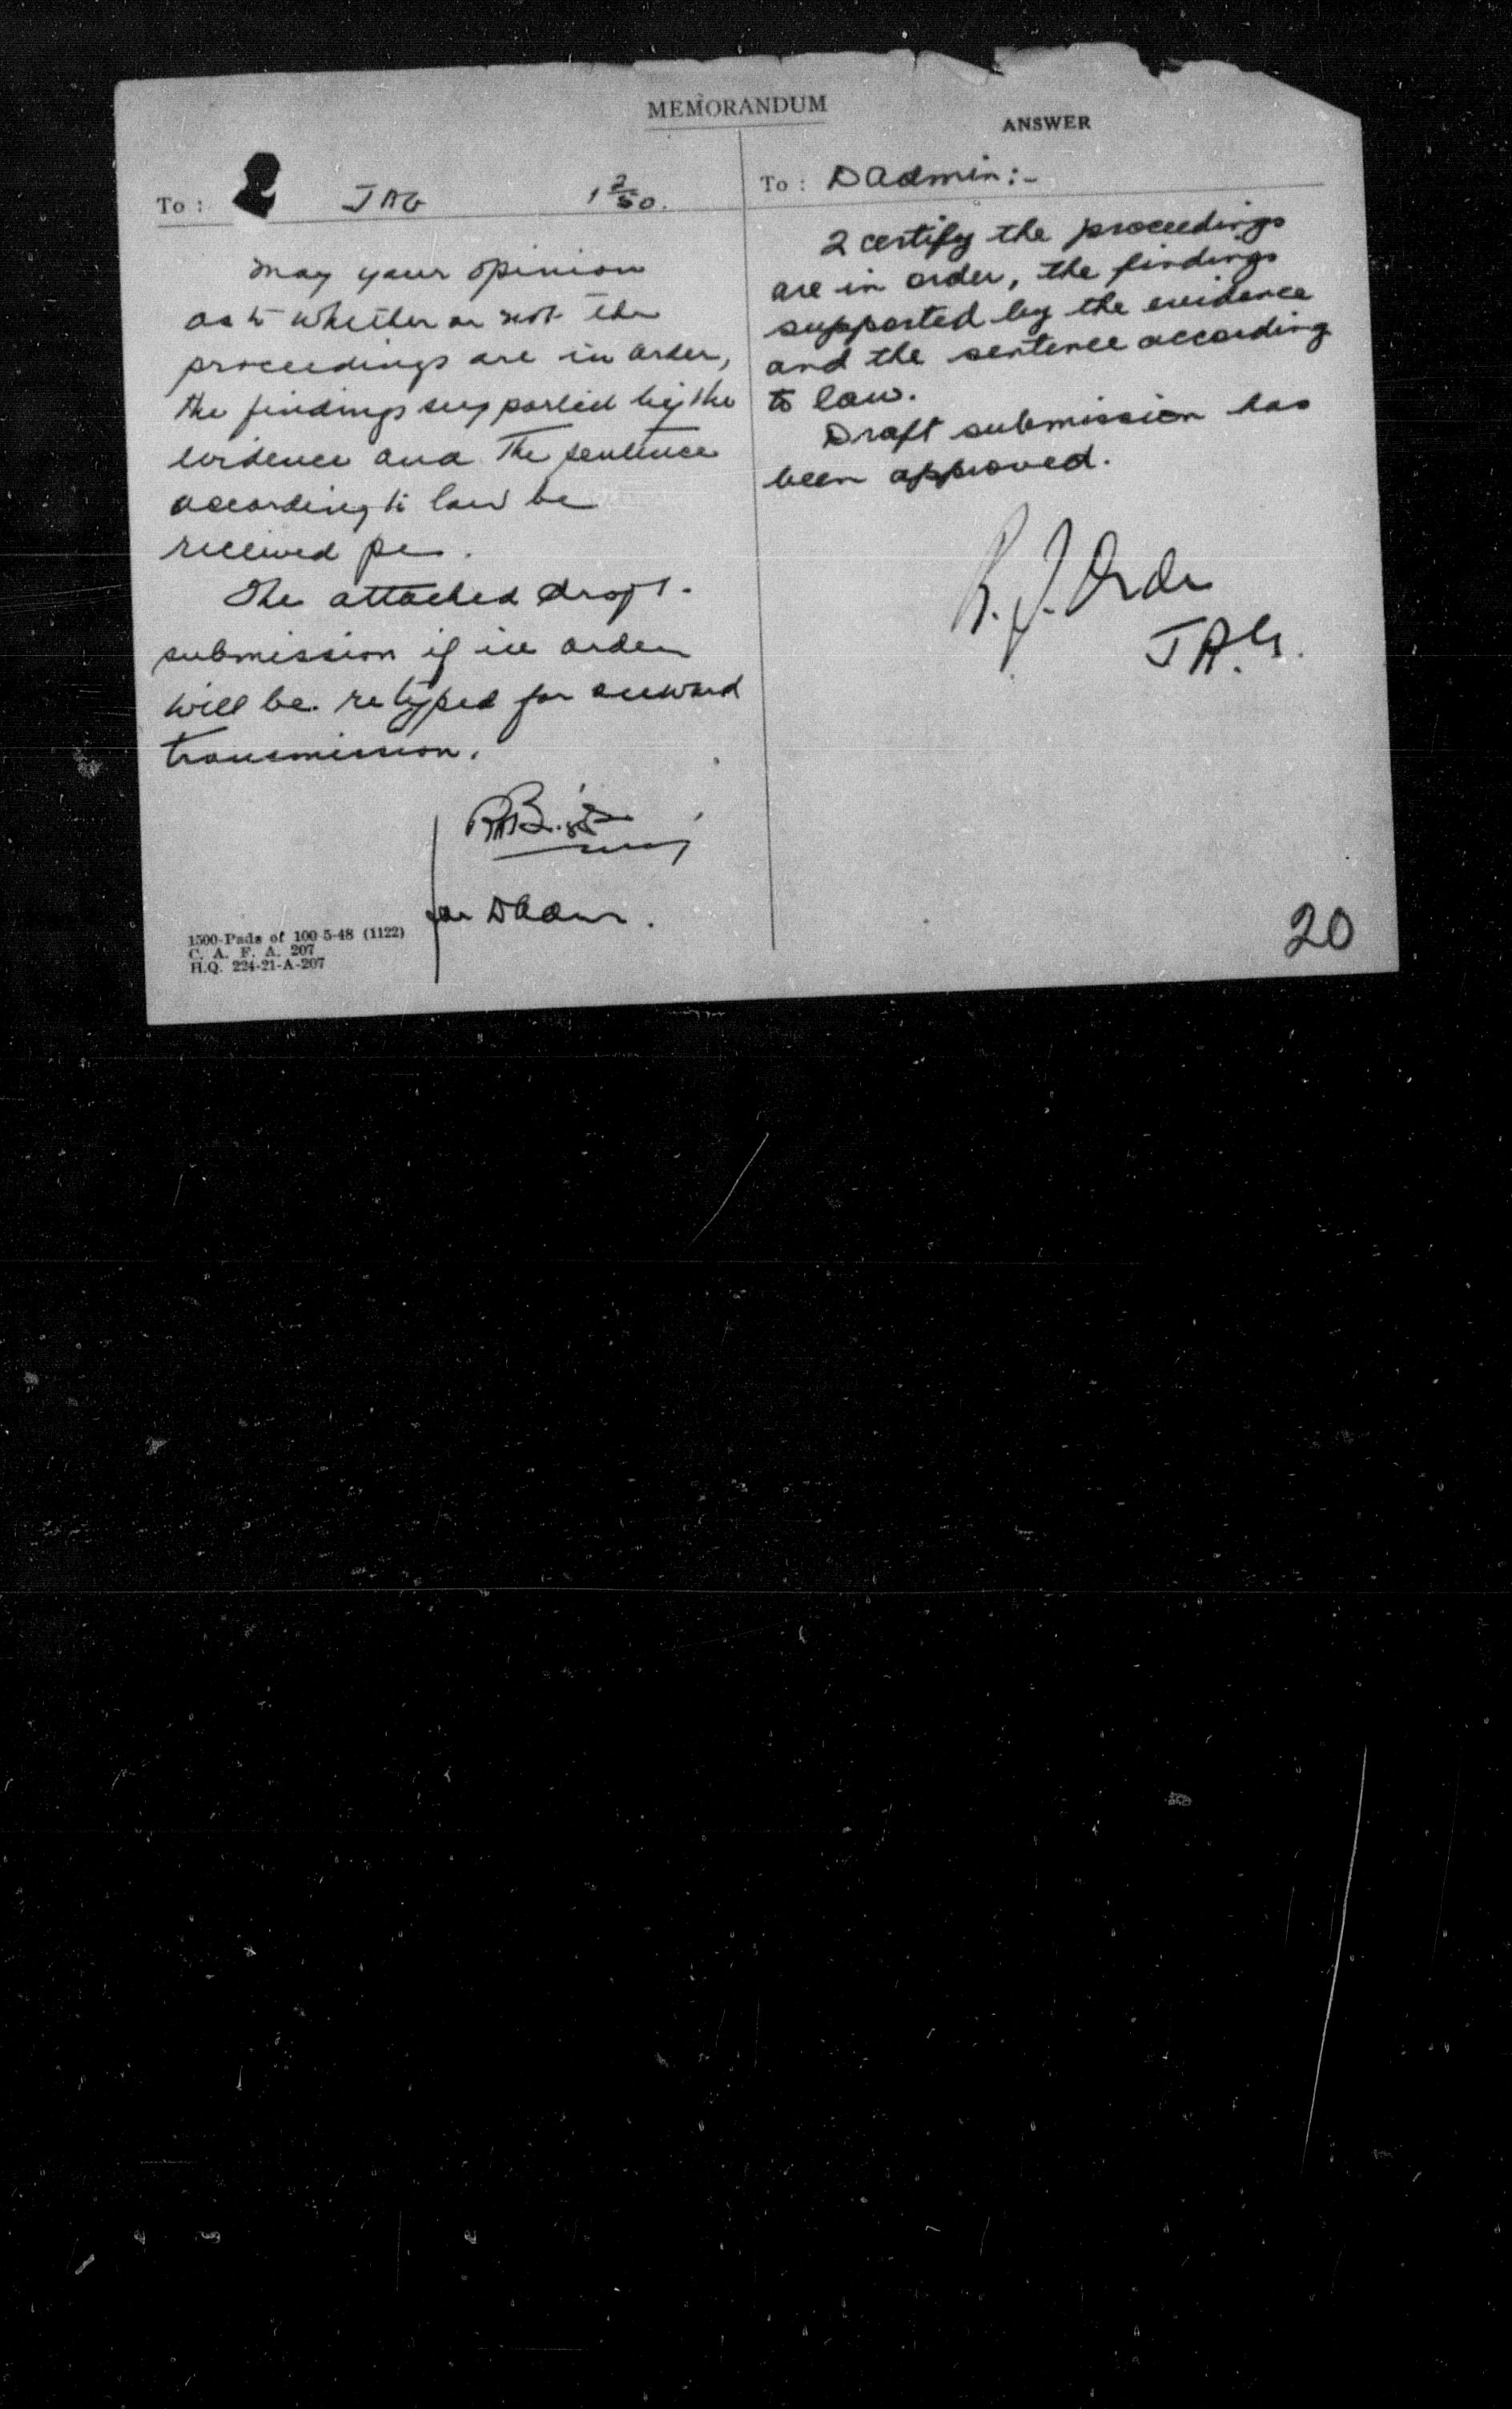 MEMORANDUM
To : JAG 1 2/50.
May your opinion
as to whether or not the
proceedings are in order,
the findings supported by the
evidence and the sentence
according to law be
received pse.
The attached draft
submission if in order
will be retyped for onward
transmission.
for DAdm.
1500-Pads of 100-5-48 (1122)
C. A. F. A. 207
H.Q. 224-21-A-207
ANSWER
To : DAdmin:-
I certify the proceedings
are in order, the findings
supported by the evidence
and the sentence according
to law.
Draft submission has
been approved.
R. J. Orde
J.A.G.
20